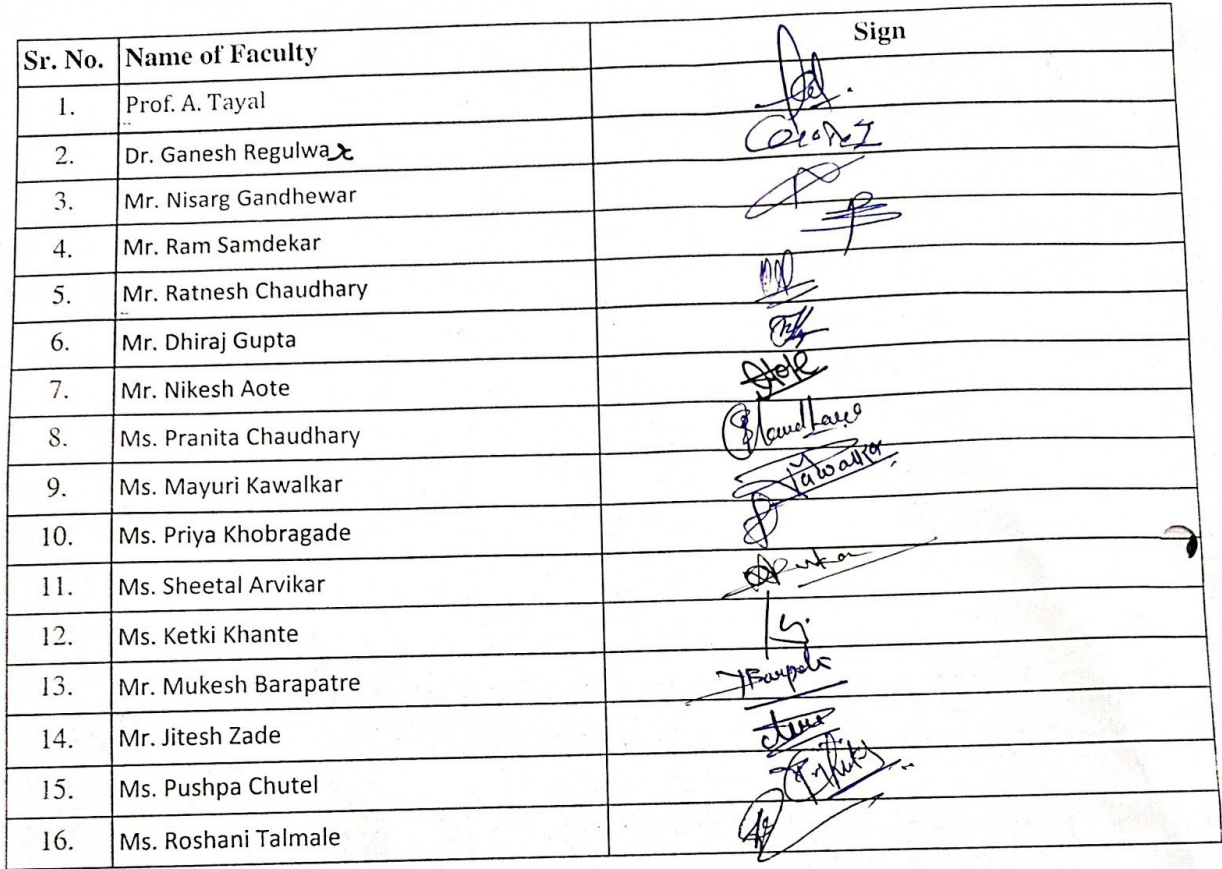 Sr. No. Name of Faculty Sign
1. Prof. A. Tayal
2. Dr. Ganesh Regulwar
3. Mr. Nisarg Gandhewar
4. Mr. Ram Samdekar
5. Mr. Ratnesh Chaudhary
6. Mr. Dhiraj Gupta
7. Mr. Nikesh Aote
8. Ms. Pranita Chaudhary
9. Ms. Mayuri Kawalkar
10. Ms. Priya Khobragade
11. Ms. Sheetal Arvikar
12. Ms. Ketki Khante
13. Mr. Mukesh Barapatre
14. Mr. Jitesh Zade
15. Ms. Pushpa Chutel
16. Ms. Roshani Talmale